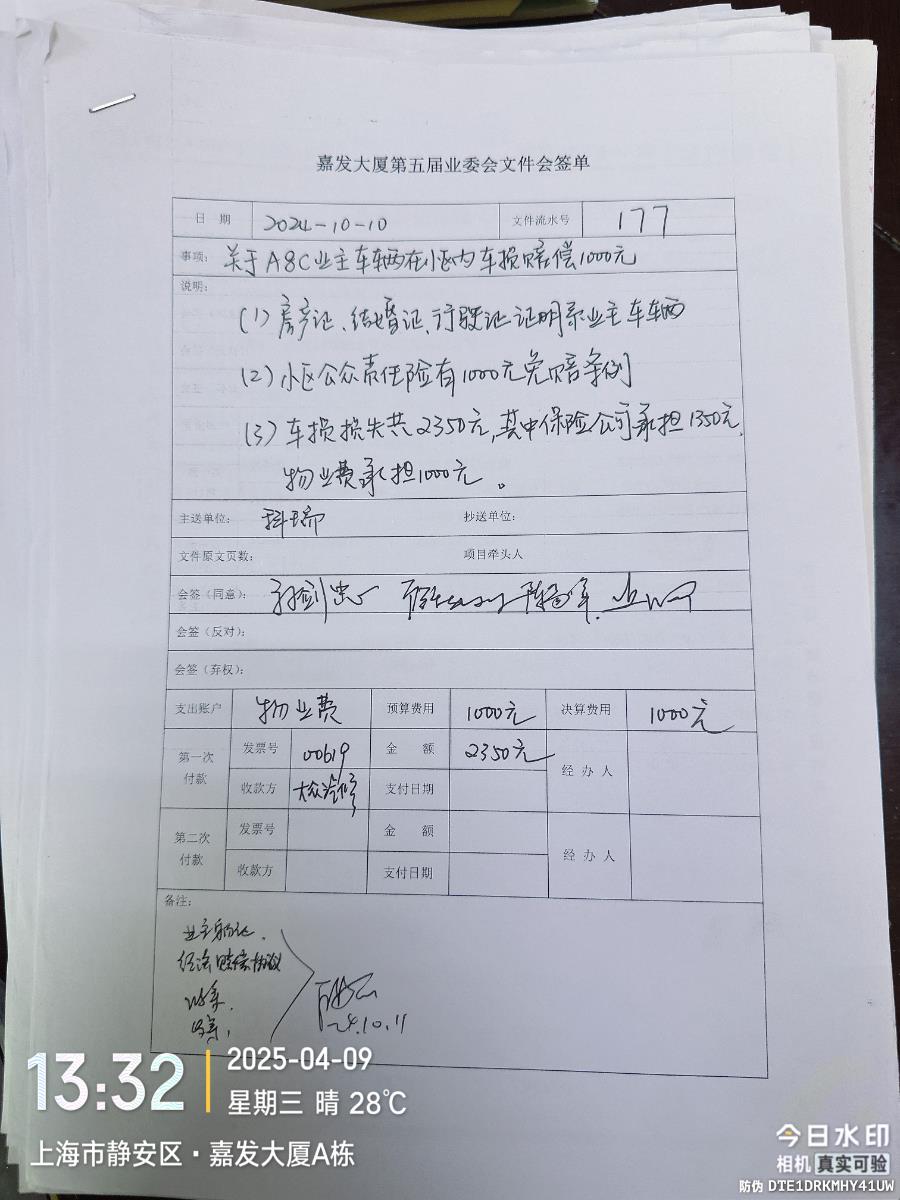 嘉发大厦第五届业委会文件会签单
日 期 2024-10-10 文件流水号 177
事项: 关于A8C业主车辆在小区内车损赔偿1000元
说明:
(1)房产证、结婚证、行驶证证明系业主车辆
(2)小区公众责任险有1000元免赔条例
(3)车损损失共2350元,其中保险公司承担1350元,
物业费承担1000元。
主送单位: 科瑞 抄送单位:
文件原文页数: 项目牵头人
会签(同意):
会签(反对):
会签(弃权):
支出账户 物业费 预算费用 1000元 决算费用 1000元
第一次付款 发票号 00619 金 额 2350元 经 办 人
收款方 大众汽修 支付日期
第二次付款 发票号 金 额 经 办 人
收款方 支付日期
备注:
赔偿协议
收条,
24.10.11
13:32 2025-04-09
星期三 晴 28℃
上海市静安区·嘉发大厦A栋
今日水印
相机 真实可验
防伪 DTE1DRKMHY41UW